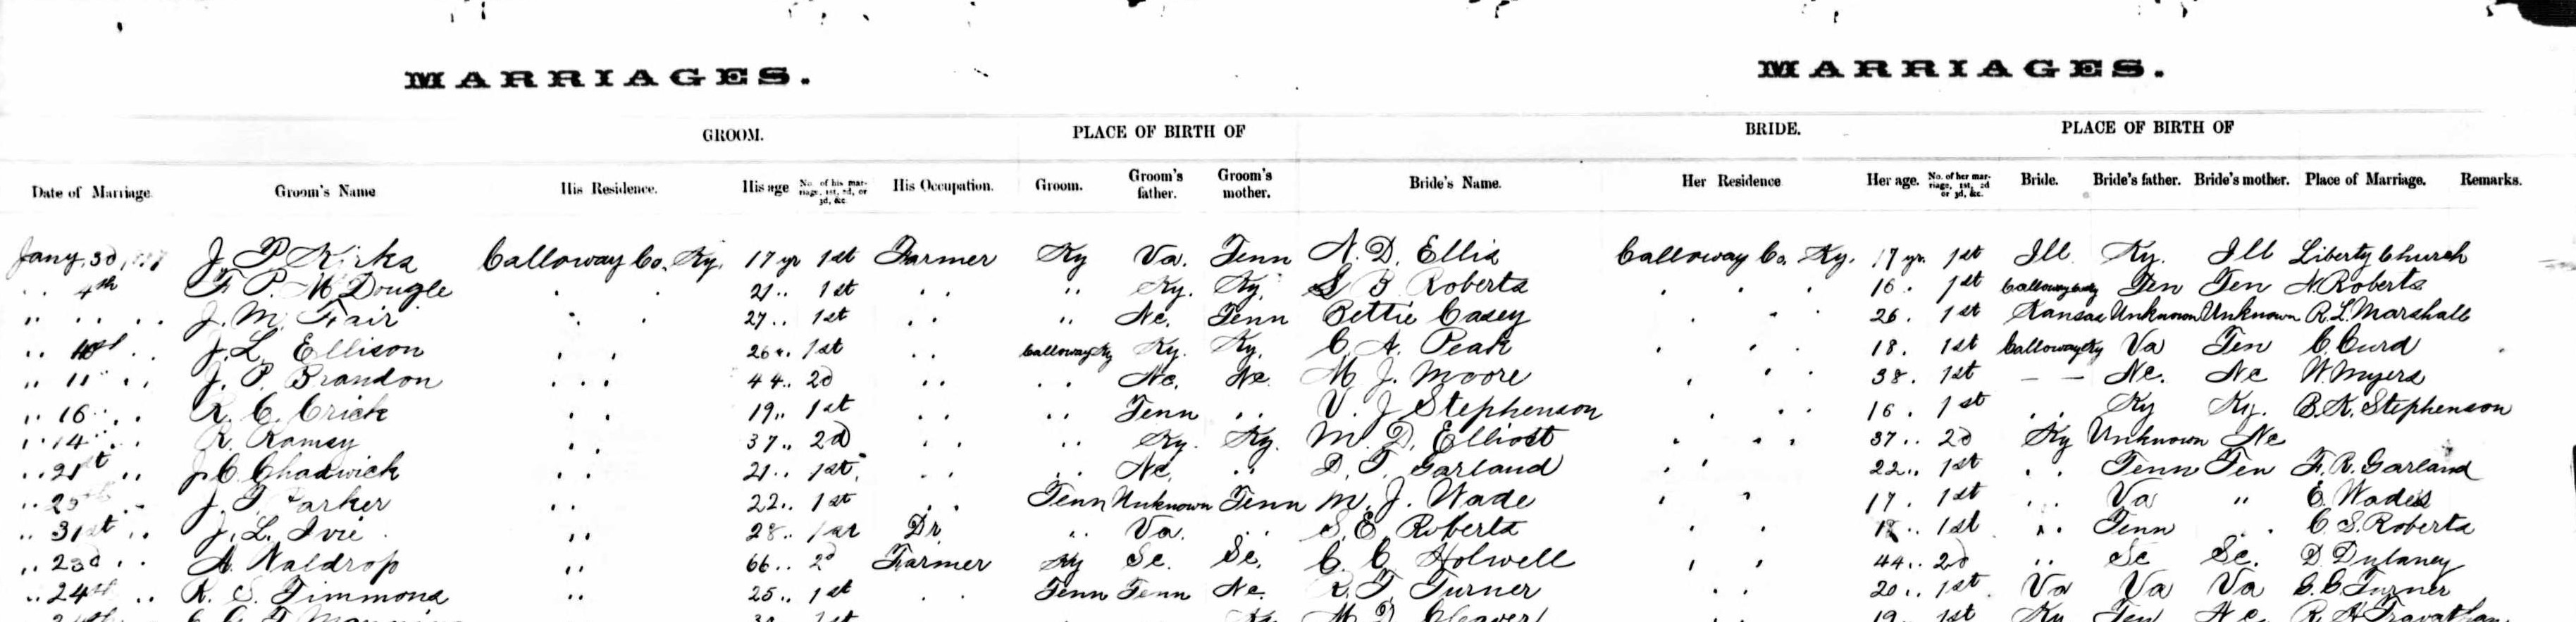 MARRIAGES. MARRIAGES.
GROOM. PLACE OF BIRTH OF BRIDE. PLACE OF BIRTH OF
Date of Marriage. Groom's Name His Residence. His age No. of his marriage, 1st, 2d, or 3d, &c. His Occupation. Groom. Groom's father. Groom's mother. Bride's Name. Her Residence Her age. No. of her marriage, 1st, 2d or 3d, &c. Bride. Bride's father. Bride's mother. Place of Marriage. Remarks.
Jany. 3d, J. P. Kirks Calloway Co. Ky. 17 yr 1st Farmer Ky Va. Tenn N. D. Ellis Calloway Co. Ky. 17 yr. 1st Ill. Ky. Ill Liberty Church
.. 4th F. P. McDougle . . 21 .. 1st . . .. Ky. Ky. S. Roberts . . . 16 . 1st Calloway Ten Ten N. Roberts
.. .. . . J. M. Fair . . 27 .. 1st . . .. Nc. Tenn Bettie Casey . . . 26 . 1st Kansas Unknown Unknown R. L. Marshall
.. . . J. L. Ellison . . 26 .. 1st . . Calloway Ky Ky. Ky. C. A. Peak . . . 18 . 1st Calloway Ky Va Ten C. Curd
.. 11 .. .. J. P. Brandon . . . 44 .. 2d .. . . Nc. Nc. M. J. Moore . . . 38 . 1st — — Nc. Nc W. Myers
.. 16 .. . R. C. Crick . . 19 .. 1st . . .. Tenn .. V. J Stephenson . . . 16 . 1st . . Ky Ky. B. K. Stephenson
.. 14 .. . R. Ramsy . . 37 .. 2d . . .. Ky. Ky. M. D. Elliott . . . 37 .. 2d Ky Unknown Nc
.. 21st .. J. C. Chadwick . . 21 .. 1st. . . .. Nc. .. D. T. Garland . . 22 .. 1st . . Tenn Ten F. R. Garland
.. 25th .. J. T. Parker . . 22 .. 1st . . Tenn Unknown Tenn M. J. Wade . . 17 . 1st . . Va " E. Wades
.. 31st .. J. L. Ivie . .. 28 .. 1st Dr. .. Va. .. S. E. Roberts . . 18 .. 1st .. Tenn . . C. S. Roberts
.. 23d . . A. Waldrop .. 66 .. 2d Farmer Ky Sc. Sc. C. C. Holwell . . 44 .. 2d .. Sc Sc. D. Dulaney
.. 24th .. R. S. Timmons .. 25 .. 1st . . Tenn Tenn Nc. R. T. Turner . . 20 .. 1st. Va Va Va C. C Turner
1st Ky. M. D. Cleaver 19 . 1st Ky Ten N.c. R. H Travathan